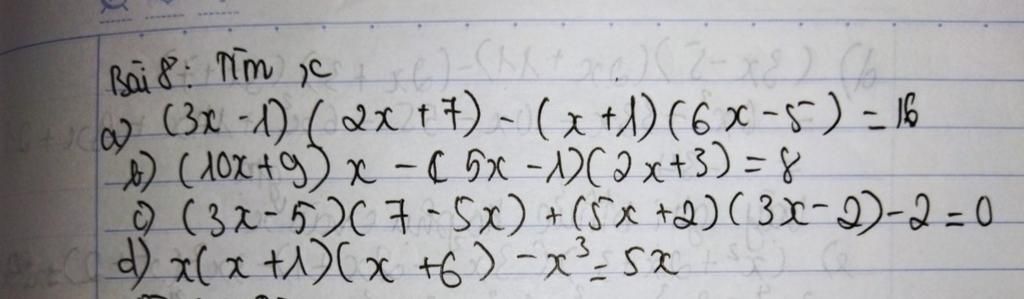 Bài 8: Tìm x
a) (3x - 1)(2x + 7) - (x + 1)(6x - 5) = 16
b) (10x + 9)x - (5x - 1)(2x + 3) = 8
c) (3x - 5)(7 - 5x) + (5x + 2)(3x - 2) - 2 = 0
d) x(x + 1)(x + 6) - x³ = 5x